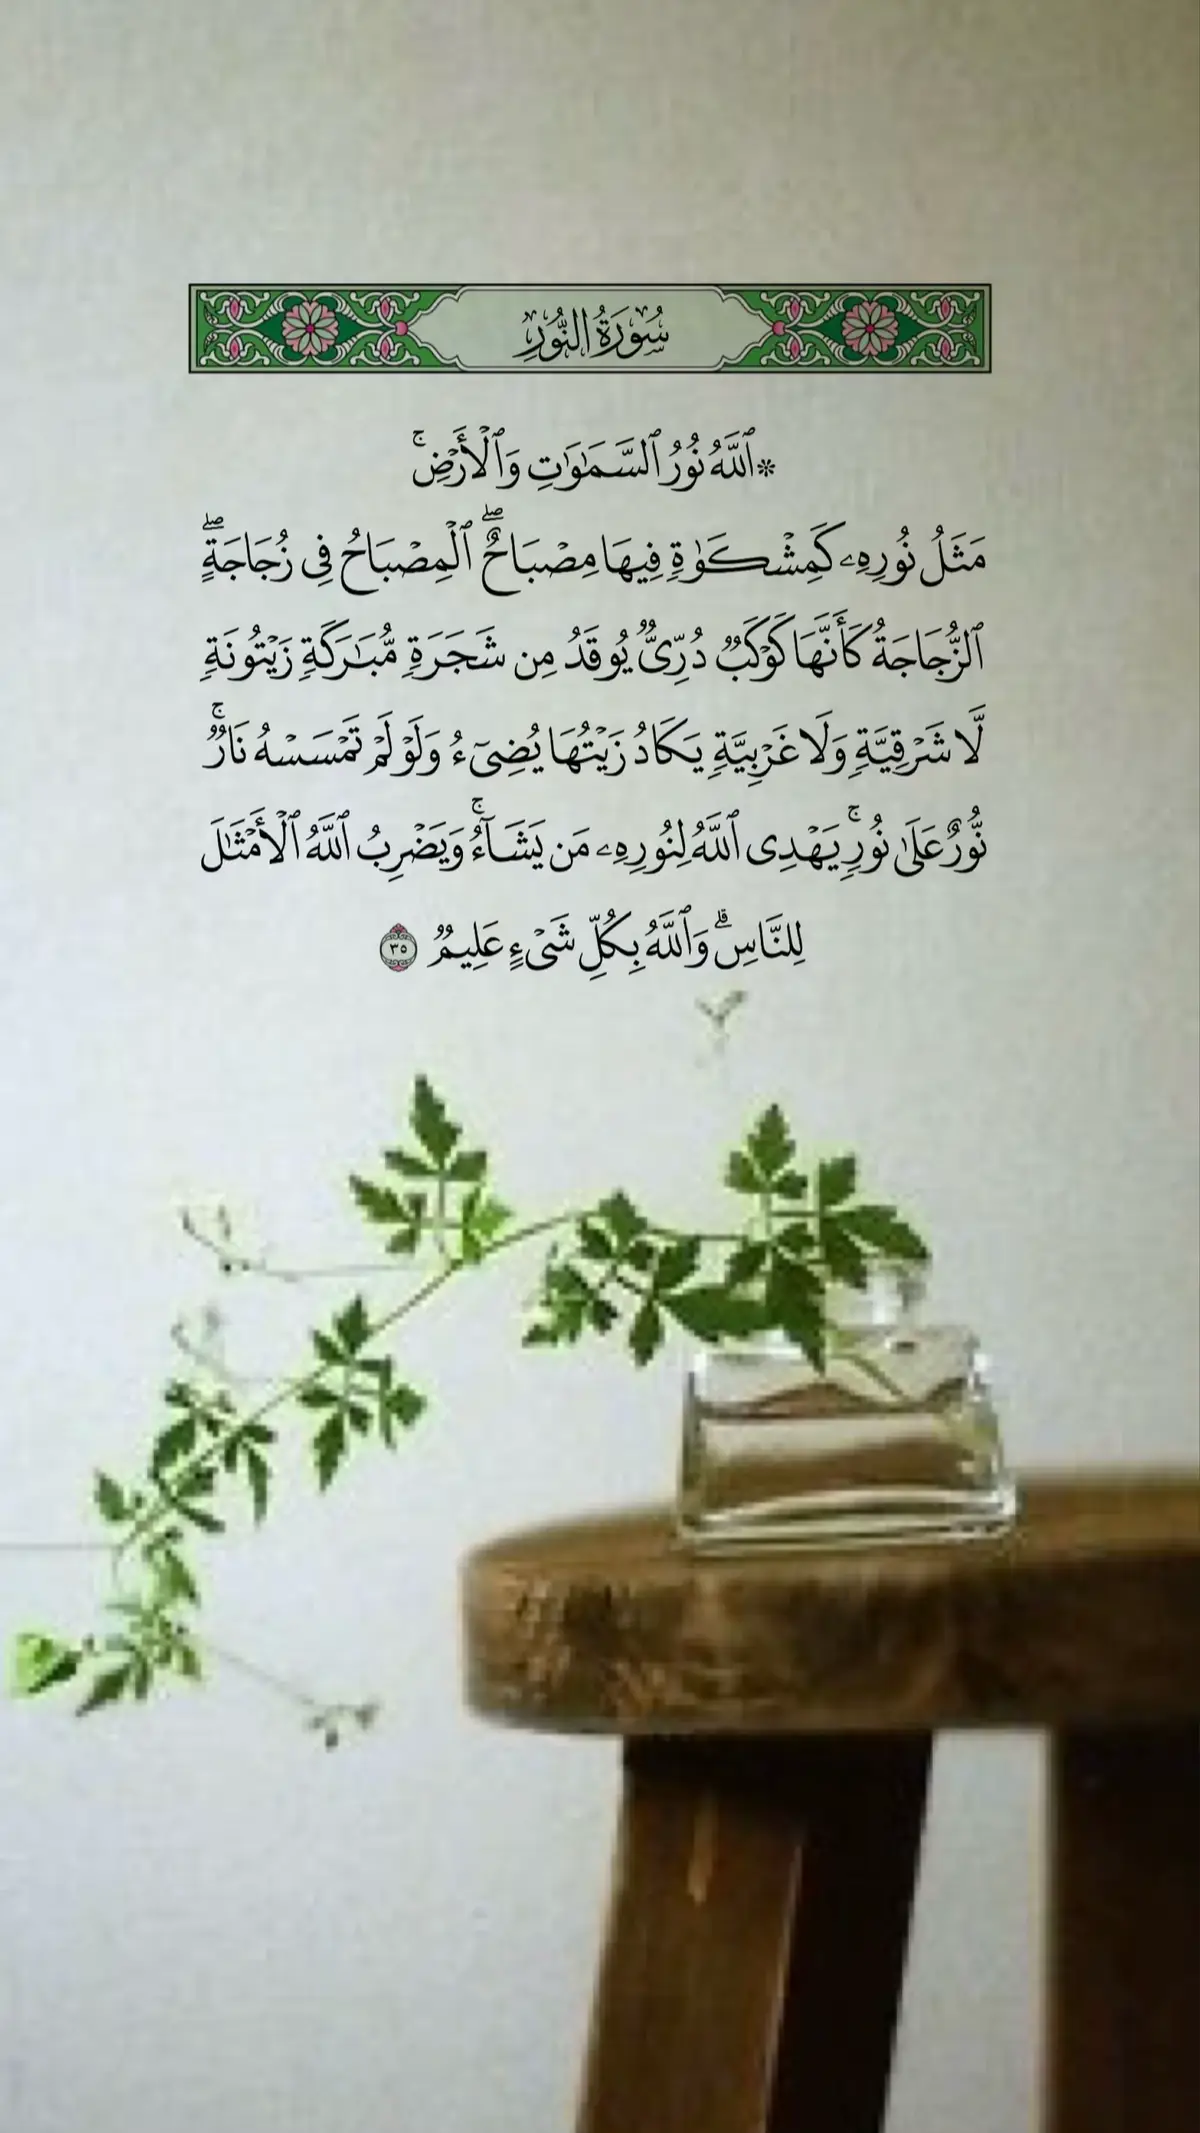 سُورَةُ النُّورِ
۞ٱللَّهُ نُورُ ٱلسَّمَٰوَٰتِ وَٱلْأَرْضِۚ
مَثَلُ نُورِهِۦ كَمِشْكَوٰةٍ فِيهَا مِصْبَاحٌۖ ٱلْمِصْبَاحُ فِى زُجَاجَةٍۖ
ٱلزُّجَاجَةُ كَأَنَّهَا كَوْكَبٌ دُرِّىٌّ يُوقَدُ مِن شَجَرَةٍ مُّبَٰرَكَةٍ زَيْتُونَةٍ
لَّا شَرْقِيَّةٍ وَلَا غَرْبِيَّةٍ يَكَادُ زَيْتُهَا يُضِىٓءُ وَلَوْ لَمْ تَمْسَسْهُ نَارٌۚ
نُّورٌ عَلَىٰ نُورٍۚ يَهْدِى ٱللَّهُ لِنُورِهِۦ مَن يَشَآءُۚ وَيَضْرِبُ ٱللَّهُ ٱلْأَمْثَٰلَ
لِلنَّاسِۗ وَٱللَّهُ بِكُلِّ شَىْءٍ عَلِيمٌ ٣٥